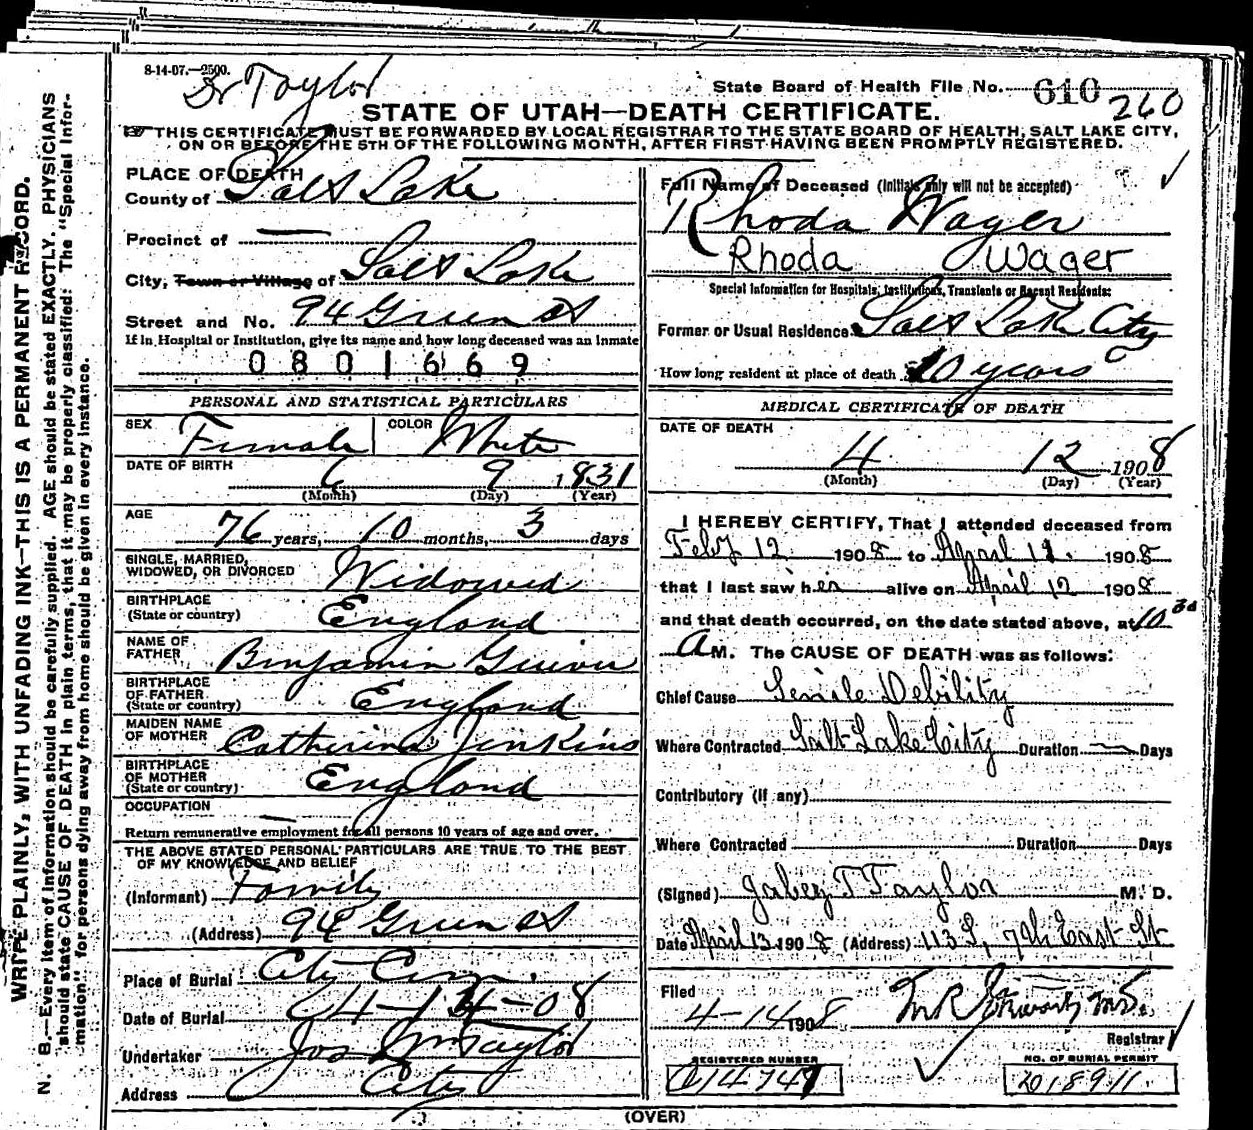 8-14-07.—2500.
Dr Taylor
State Board of Health File No. 610
260
STATE OF UTAH—DEATH CERTIFICATE.
☞ THIS CERTIFICATE MUST BE FORWARDED BY LOCAL REGISTRAR TO THE STATE BOARD OF HEALTH, SALT LAKE CITY,
ON OR BEFORE THE 5TH OF THE FOLLOWING MONTH, AFTER FIRST HAVING BEEN PROMPTLY REGISTERED.
WRITE PLAINLY, WITH UNFADING INK—THIS IS A PERMANENT RECORD.
N. B.—Every item of information should be carefully supplied. AGE should be stated EXACTLY. PHYSICIANS
should state CAUSE OF DEATH in plain terms, that it may be properly classified. The "Special Infor-
mation" for persons dying away from home should be given in every instance.
PLACE OF DEATH
County of Salt Lake
Precinct of —
City, Town or Village of Salt Lake
Street and No. 94 Green St
If in Hospital or Institution, give its name and how long deceased was an inmate
0801669
PERSONAL AND STATISTICAL PARTICULARS
SEX Female COLOR White
DATE OF BIRTH 6 9 1831
(Month) (Day) (Year)
AGE 76 years, 10 months, 3 days
SINGLE, MARRIED,
WIDOWED, OR DIVORCED Widowed
BIRTHPLACE
(State or country) England
NAME OF
FATHER Benjamin
BIRTHPLACE
OF FATHER
(State or country) England
MAIDEN NAME
OF MOTHER Catherine Jenkins
BIRTHPLACE
OF MOTHER
(State or country) England
OCCUPATION —
Return remunerative employment for all persons 10 years of age and over.
THE ABOVE STATED PERSONAL PARTICULARS ARE TRUE TO THE BEST
OF MY KNOWLEDGE AND BELIEF
(Informant) Family
(Address) 94 Green St
Place of Burial City Cem.
Date of Burial 4-14-08
Undertaker Jos Wm Taylor
Address City
Full Name of Deceased (Initials only will not be accepted)
Rhoda Wager
Rhoda Wager
Special Information for Hospitals, Institutions, Transients or Recent Residents:
Former or Usual Residence Salt Lake City
How long resident at place of death 10 years
MEDICAL CERTIFICATE OF DEATH
DATE OF DEATH
4 12 1908
(Month) (Day) (Year)
I HEREBY CERTIFY, That I attended deceased from
Feby 12 1908 to April 12. 1908
that I last saw her alive on April 12 1908
and that death occurred, on the date stated above, at 10 30
A M. The CAUSE OF DEATH was as follows:
Chief Cause Senile Debility
Where Contracted Salt Lake City Duration — Days
Contributory (if any)
Where Contracted Duration Days
(Signed) Jabez T Taylor M. D.
Date April 13 1908 (Address) 113 S, 7th East St
Filed
4-14 1908
Registrar
REGISTERED NUMBER
014747
NO. OF BURIAL PERMIT
(OVER)